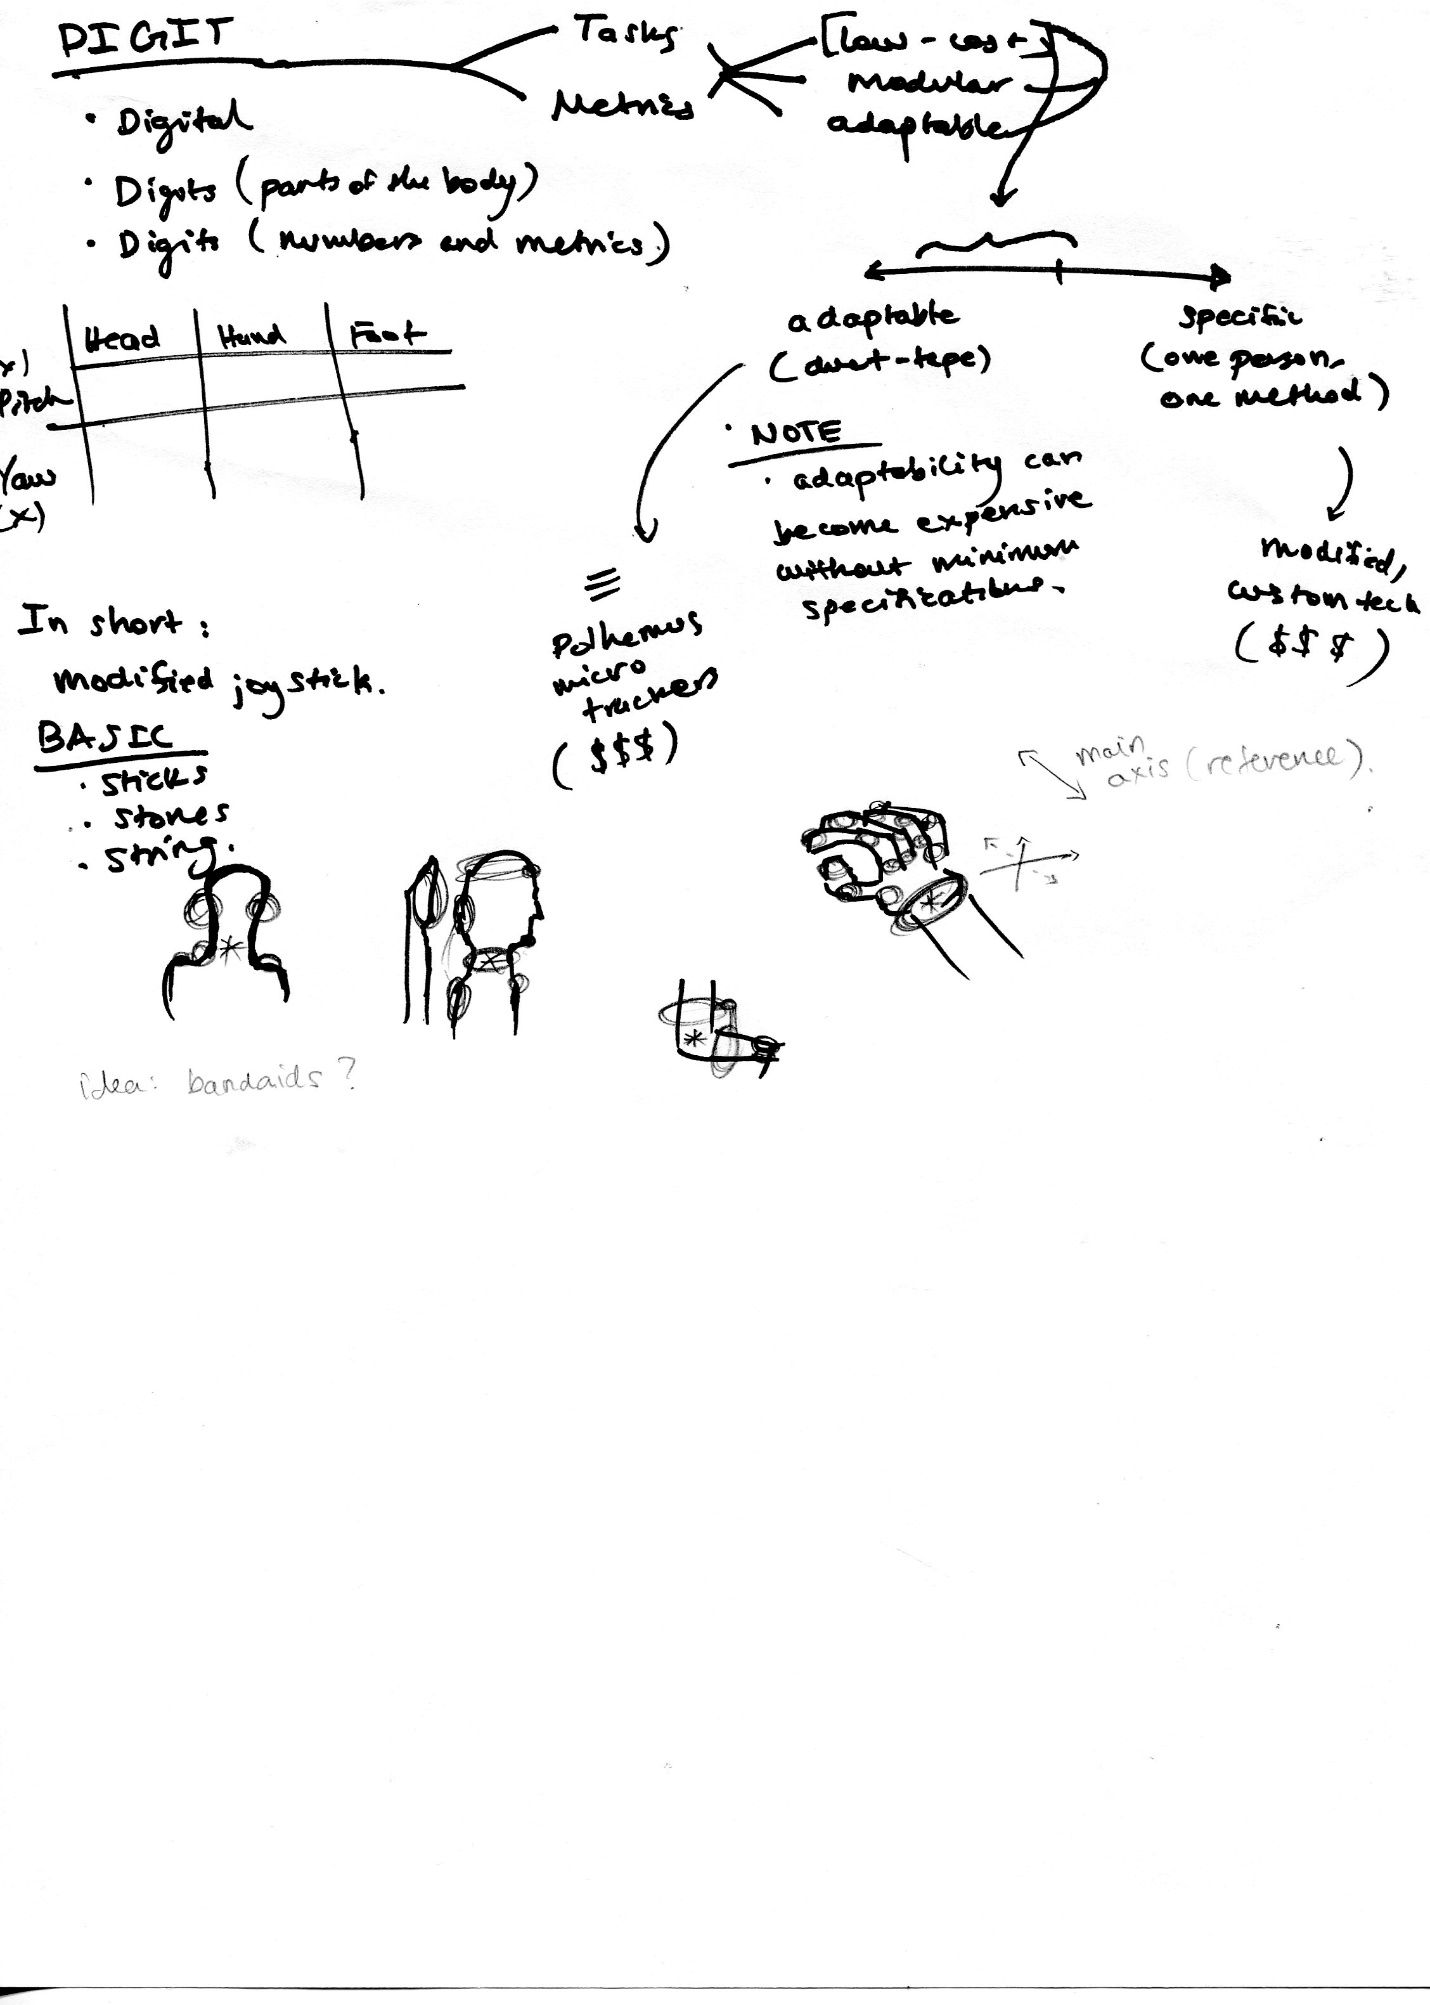 DIGIT
Tasks
Metrics
[low-cost]
modular
adaptable
· Digital
· Digits (parts of the body)
· Digits (numbers and metrics)
Head Hand Foot
Pitch
Yaw
(x)
adaptable
(duct-tape)
specific
(one person,
one method)
· NOTE
· adaptability can
become expensive
without minimum
specifications.
modified,
custom tech
($$$)
Polhemus
micro
trackers
($$$)
In short:
modified joystick.
BASIC
· sticks
· stones
· string.
main
axis (reference).
idea: bandaids?